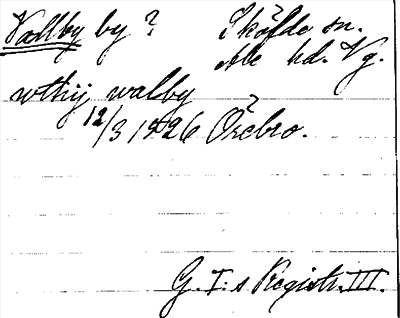 Vallby by? Sköfde sn.
Ale hd. Vg.
wthij walby
12/3 1526 Örebro.
G. I:s Registr. III.